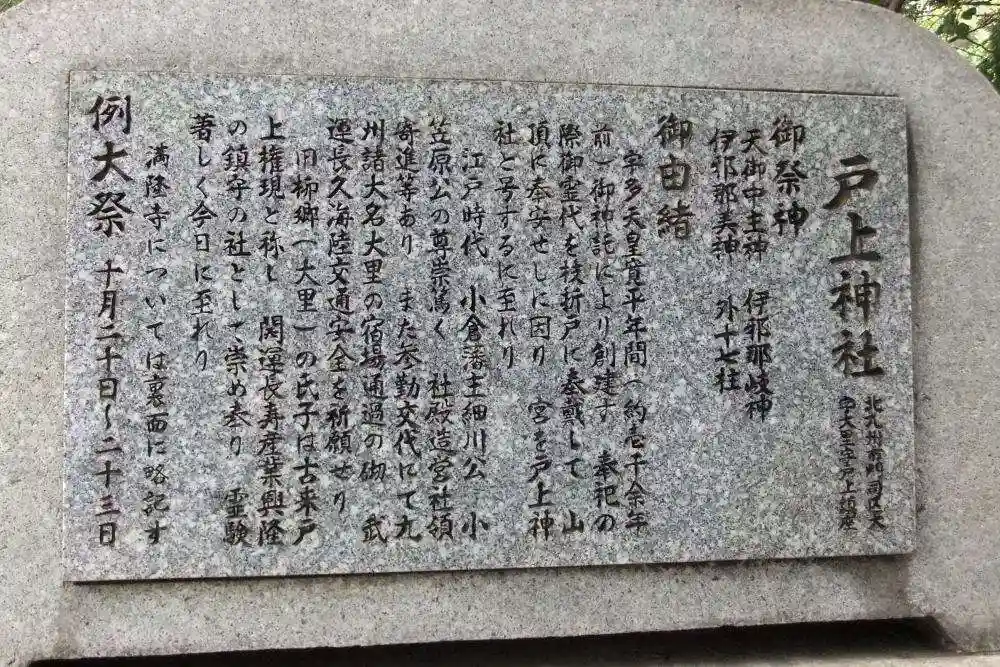 戸上神社
北九州市門司区大
字大里字戸上鎮座
御祭神
天御中主神 伊邪那岐神
伊邪那美神 外十七柱
御由緒
宇多天皇寛平年間(約壱千余年
前)御神託により創建す 奉祀の
際御霊代を枝折戸に奉戴して 山
頂に奉安せしに因り 宮を戸上神
社と号するに至れり
江戸時代 小倉藩主細川公 小
笠原公の尊崇篤く 社殿造営社領
寄進等あり また参勤交代にて九
州諸大名大里の宿場通過の砌 武
運長久海陸交通安全を祈願せり
旧柳郷(大里)の氏子は古来戸
上権現と称し 開運長寿産業興隆
の鎮守の社として崇め奉り 霊験
著しく今日に至れり
満隆寺については裏面に略記す
例大祭 十月二十日～二十三日